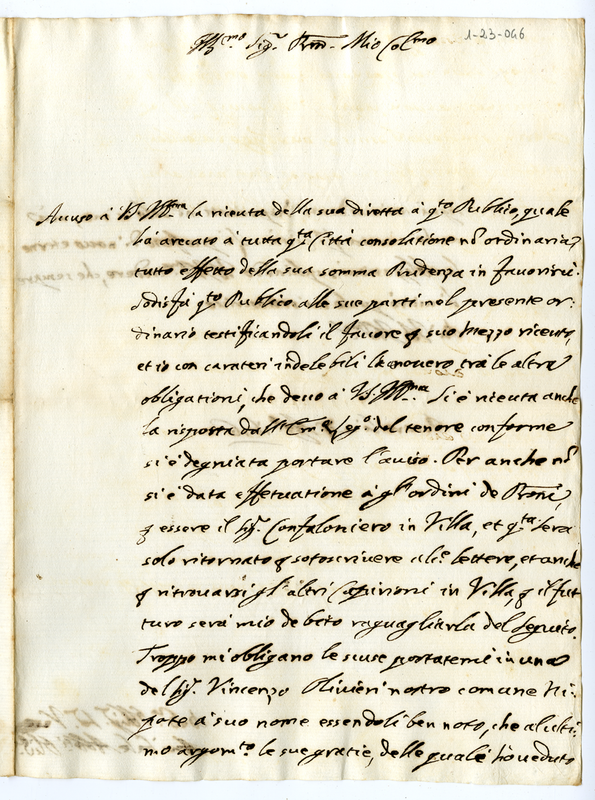 Ill.mo Sig.r P.ron Mio Col.mo
1-23-046
Auuso à V.S. Ill.ma la riceuta della sua diretta à q.to Publico, quale
hà arecato à tutta q.ta Città consolatione nō ordinaria,
tutto effetto della sua somma Prudenza in fauorirci.
Sodisfà q.to Publico alle sue parti nel presente or:
dinario testificandoli il fauore p suo mezzo riceuto,
et io con carateri indelebili lo trà le altre
obligationi, che deuo à V.S. Ill.ma. Si è riceuta anche
la risposta dall' del tenore conforme
si è degniata portare l'auiso. Per anche nō
si è data effetuatione à gl'ordini de P.roni,
p essere il Sig.r Confaloniero in Villa, et q.ta sera
solo ritornato p sotoscriuere le lettere, et anche
p ritrouarsi gl'altri Caporioni in Villa, p il fut
turo serà mio debito raguagliarla del seguito.
Troppo mi obligano le scuse portatemi in una
del Sig.r Vincenzo Oliuieri nostro comune Ni:
pote à suo nome essendoli ben noto, che al ulti:
mo argom.to le sue gratie, delle quale hò ueduto